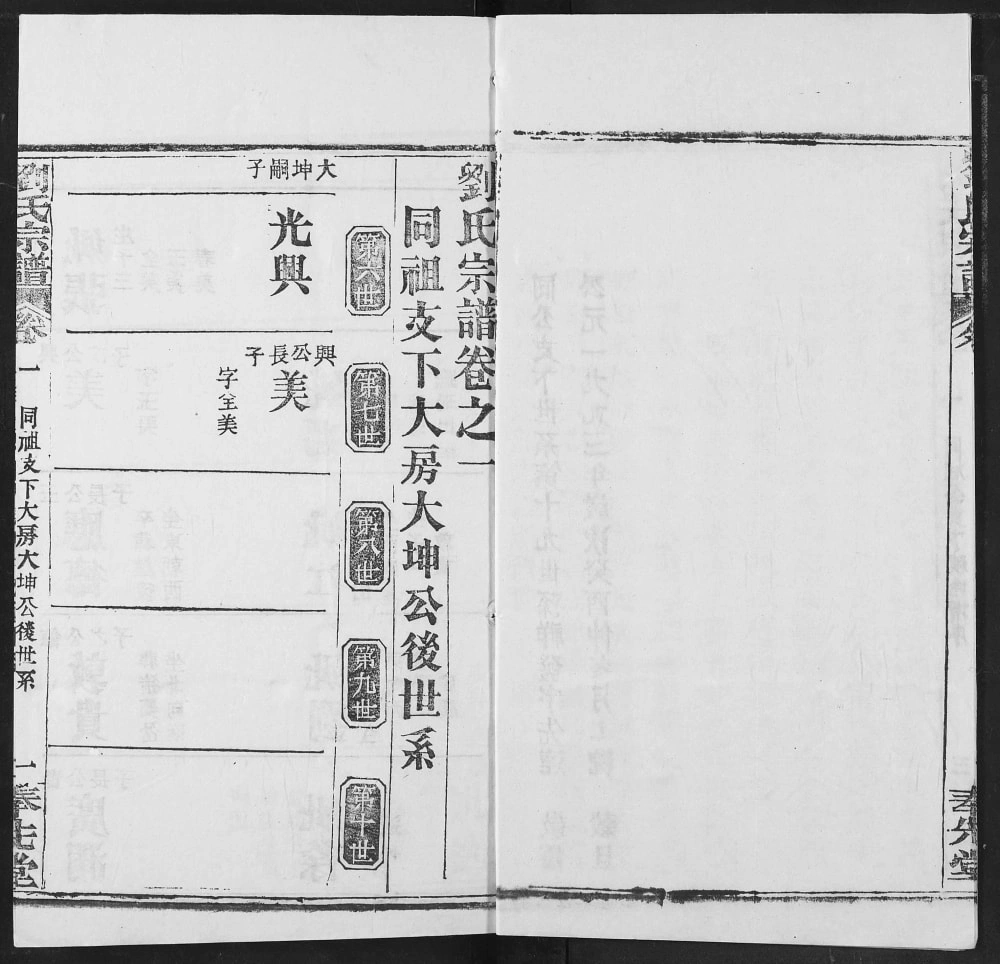 劉氏宗譜
奉先堂
劉氏宗譜卷之一
同祖支下大房大坤公後世系
第六世
第七世
第八世
第九世
第十世
大坤嗣子
光興
興公長子
美
字全美
劉氏宗譜
卷一
同祖支下大房大坤公後世系
一
奉先堂